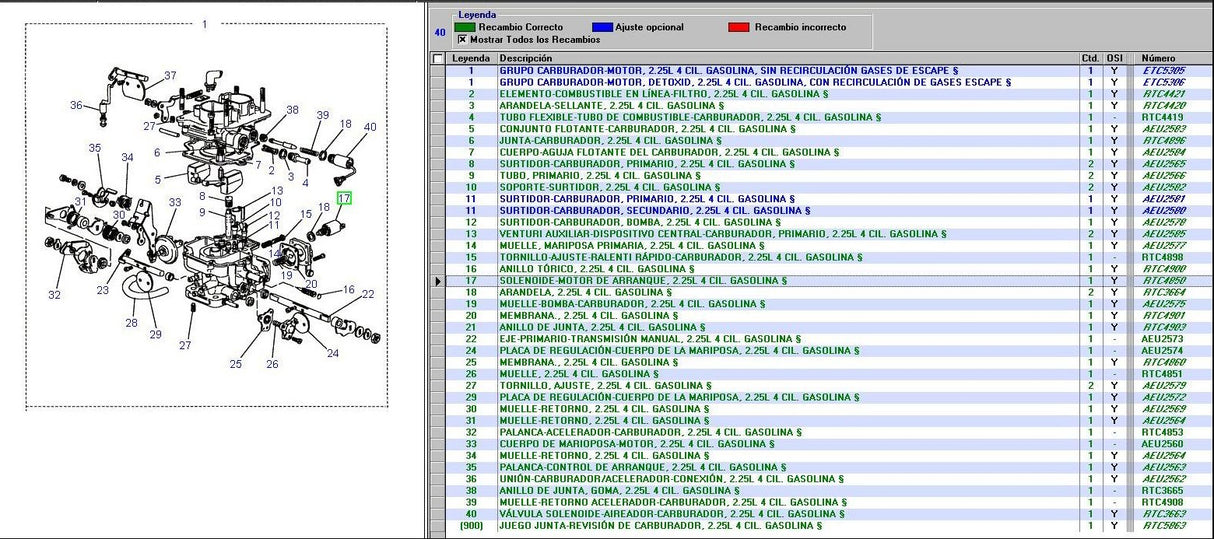 1
37
36
27
38
39
18
40
35
34
6
7
2
3
4
5
8
13
10
9
12
11
15
18
17
31
30
33
14
19
20
16
22
32
23
28
29
27
25
26
24
Leyenda
Recambio Correcto
Ajuste opcional
Recambio incorrecto
40
Mostrar Todos los Recambios
Leyenda Descripción Ctd. OSI Número
1 GRUPO CARBURADOR-MOTOR, 2.25L 4 CIL. GASOLINA, SIN RECIRCULACIÓN GASES DE ESCAPE § 1 Y ETC5305
1 GRUPO CARBURADOR-MOTOR, DETOXID, 2.25L 4 CIL. GASOLINA, CON RECIRCULACIÓN DE GASES ESCAPE § 1 Y ETC5306
2 ELEMENTO-COMBUSTIBLE EN LÍNEA-FILTRO, 2.25L 4 CIL. GASOLINA § 1 Y RTC4421
3 ARANDELA-SELLANTE, 2.25L 4 CIL. GASOLINA § 1 Y RTC4420
4 TUBO FLEXIBLE-TUBO DE COMBUSTIBLE-CARBURADOR, 2.25L 4 CIL. GASOLINA § 1 - RTC4419
5 CONJUNTO FLOTANTE-CARBURADOR, 2.25L 4 CIL. GASOLINA § 1 Y AEU2583
6 JUNTA-CARBURADOR, 2.25L 4 CIL. GASOLINA § 1 Y RTC4896
7 CUERPO-AGUJA FLOTANTE DEL CARBURADOR, 2.25L 4 CIL. GASOLINA § 1 Y AEU2584
8 SURTIDOR-CARBURADOR, PRIMARIO, 2.25L 4 CIL. GASOLINA § 2 Y AEU2565
9 TUBO, PRIMARIO, 2.25L 4 CIL. GASOLINA § 2 Y AEU2566
10 SOPORTE-SURTIDOR, 2.25L 4 CIL. GASOLINA § 2 Y AEU2582
11 SURTIDOR-CARBURADOR, PRIMARIO, 2.25L 4 CIL. GASOLINA § 1 Y AEU2581
11 SURTIDOR-CARBURADOR, SECUNDARIO, 2.25L 4 CIL. GASOLINA § 1 Y AEU2580
12 SURTIDOR-CARBURADOR, BOMBA, 2.25L 4 CIL. GASOLINA § 1 Y AEU2578
13 VENTURI AUXILIAR-DISPOSITIVO CENTRAL-CARBURADOR, PRIMARIO, 2.25L 4 CIL. GASOLINA § 2 Y AEU2585
14 MUELLE, MARIPOSA PRIMARIA, 2.25L 4 CIL. GASOLINA § 1 Y AEU2577
15 TORNILLO-AJUSTE-RALENTI RÁPIDO-CARBURADOR, 2.25L 4 CIL. GASOLINA § 1 - RTC4898
16 ANILLO TÓRICO, 2.25L 4 CIL. GASOLINA § 1 Y RTC4900
17 SOLENOIDE-MOTOR DE ARRANQUE, 2.25L 4 CIL. GASOLINA § 1 Y RTC4850
18 ARANDELA, 2.25L 4 CIL. GASOLINA § 2 Y RTC3664
19 MUELLE-BOMBA-CARBURADOR, 2.25L 4 CIL. GASOLINA § 1 Y AEU2575
20 MEMBRANA., 2.25L 4 CIL. GASOLINA § 1 Y RTC4901
21 ANILLO DE JUNTA, 2.25L 4 CIL. GASOLINA § 1 Y RTC4903
22 EJE-PRIMARIO-TRANSMISIÓN MANUAL, 2.25L 4 CIL. GASOLINA § 1 - AEU2573
24 PLACA DE REGULACIÓN-CUERPO DE LA MARIPOSA, 2.25L 4 CIL. GASOLINA § 1 - AEU2574
25 MEMBRANA., 2.25L 4 CIL. GASOLINA § 1 Y RTC4860
26 MUELLE, 2.25L 4 CIL. GASOLINA § 1 - RTC4851
27 TORNILLO, AJUSTE, 2.25L 4 CIL. GASOLINA § 2 Y AEU2579
29 PLACA DE REGULACIÓN-CUERPO DE LA MARIPOSA, 2.25L 4 CIL. GASOLINA § 1 Y AEU2572
30 MUELLE-RETORNO, 2.25L 4 CIL. GASOLINA § 1 Y AEU2569
31 MUELLE-RETORNO, 2.25L 4 CIL. GASOLINA § 1 Y AEU2564
32 PALANCA-ACELERADOR-CARBURADOR, 2.25L 4 CIL. GASOLINA § 1 - RTC4853
33 CUERPO DE MARIOPOSA-MOTOR, 2.25L 4 CIL. GASOLINA § 1 - AEU2560
34 MUELLE-RETORNO, 2.25L 4 CIL. GASOLINA § 1 Y AEU2564
35 PALANCA-CONTROL DE ARRANQUE, 2.25L 4 CIL. GASOLINA § 1 Y AEU2563
36 UNIÓN-CARBURADOR/ACELERADOR-CONEXIÓN, 2.25L 4 CIL. GASOLINA § 1 Y AEU2562
38 ANILLO DE JUNTA, GOMA, 2.25L 4 CIL. GASOLINA § 1 - RTC3665
39 MUELLE-RETORNO ACELERADOR-CARBURADOR, 2.25L 4 CIL. GASOLINA § 1 - RTC4908
40 VÁLVULA SOLENOIDE-AIREADOR-CARBURADOR, 2.25L 4 CIL. GASOLINA § 1 Y RTC3663
(900) JUEGO JUNTA-REVISIÓN DE CARBURADOR, 2.25L 4 CIL. GASOLINA § 1 Y RTC5863